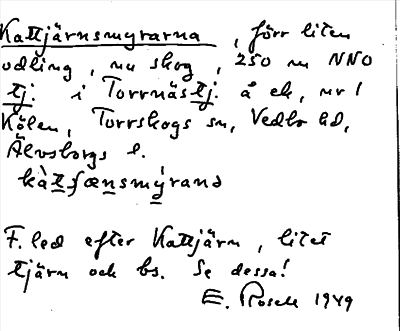 Kattjärnsmyrarna, förr liten
odling, nu skog, 250 m NNO
tj. i Torrnäs tj. å ek, nr 1
Kölen, Torrskogs sn, Vedbo hd,
Älvsborgs l.
kàt̲fæn̲smý̲rand
F. led efter Kattjärn, litet
tjärn och bs. Se dessa!
E. Rosell 1949